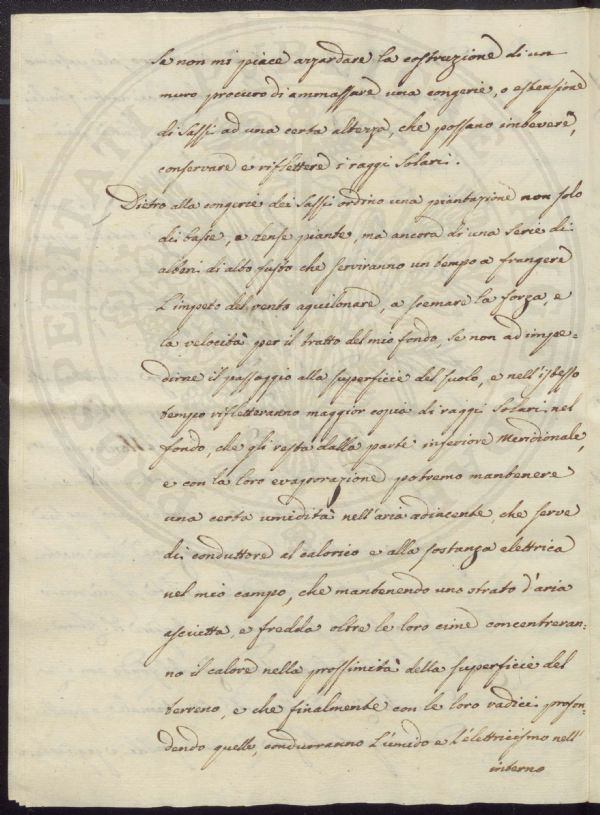 se non mi piace azzardare la costruzione di un
muro procuro di ammassare una congerie, o estensione
di Sassi ad una certa altezza, che possano imbevere,
conservare e riflettere i raggi Solari.
Dietro alla congerie dei Sassi ordino una piantazione non solo
di basse, e dense piante, ma ancora di una serie di
alberi di alto fusto che serviranno un tempo a frangere
l'impeto del vento aquilonare, a scemare la forza, e
la velocità per il tratto del mio fondo, se non ad impe=
dirne il passaggio alla superficie del suolo, e nell'istesso
tempo rifletteranno maggior copia di raggi Solari nel
fondo, che gli resta dalla parte inferiore Meridionale,
e con la loro evaporazione potremo mantenere
una certa umidità nell'aria adiacente, che serve
di conduttore al calorico e alla sostanza elettrica
nel mio campo, che mantenendo uno strato d'aria
asciutta, e fredda oltre le loro cime concentreran=
no il calore nella prossimità della superficie del
terreno, e che finalmente con le loro radici profon=
dendo quelle, condurranno l'umido e l'elettricismo nell'
interno